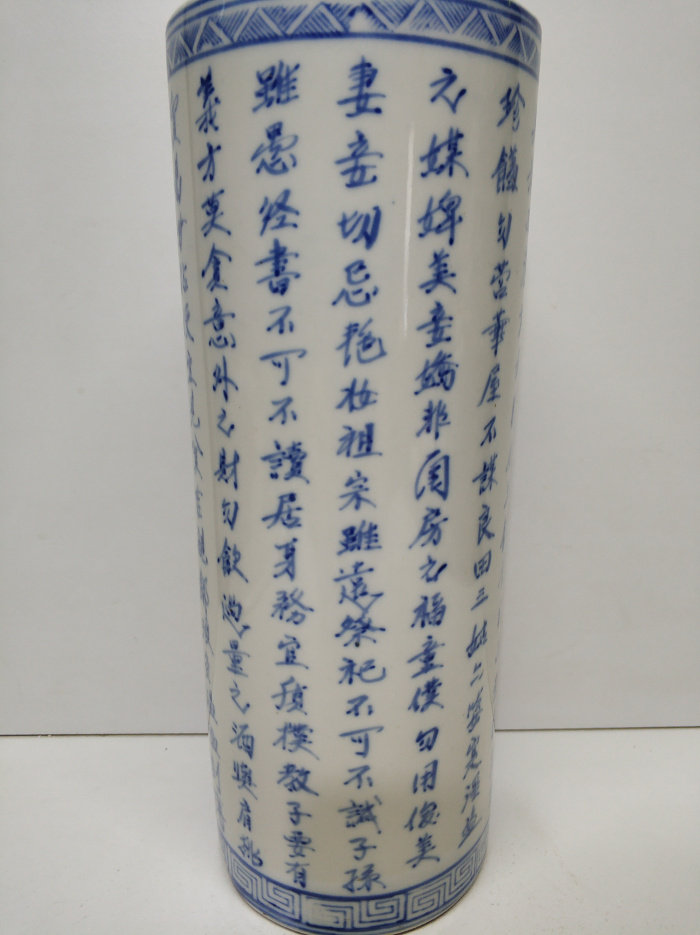 珍饈勿营華屋不謀良田三姑六婆寔淫盗
之媒婢美妾嬌非闺房之福童僕勿用俊美
妻妾切忌艳妆祖宗雖遠祭祀不可不誠子孫
雖愚经書不可不讀居身務宜質樸教子要有
義方莫貪意外之財勿飲過量之酒與肩挑